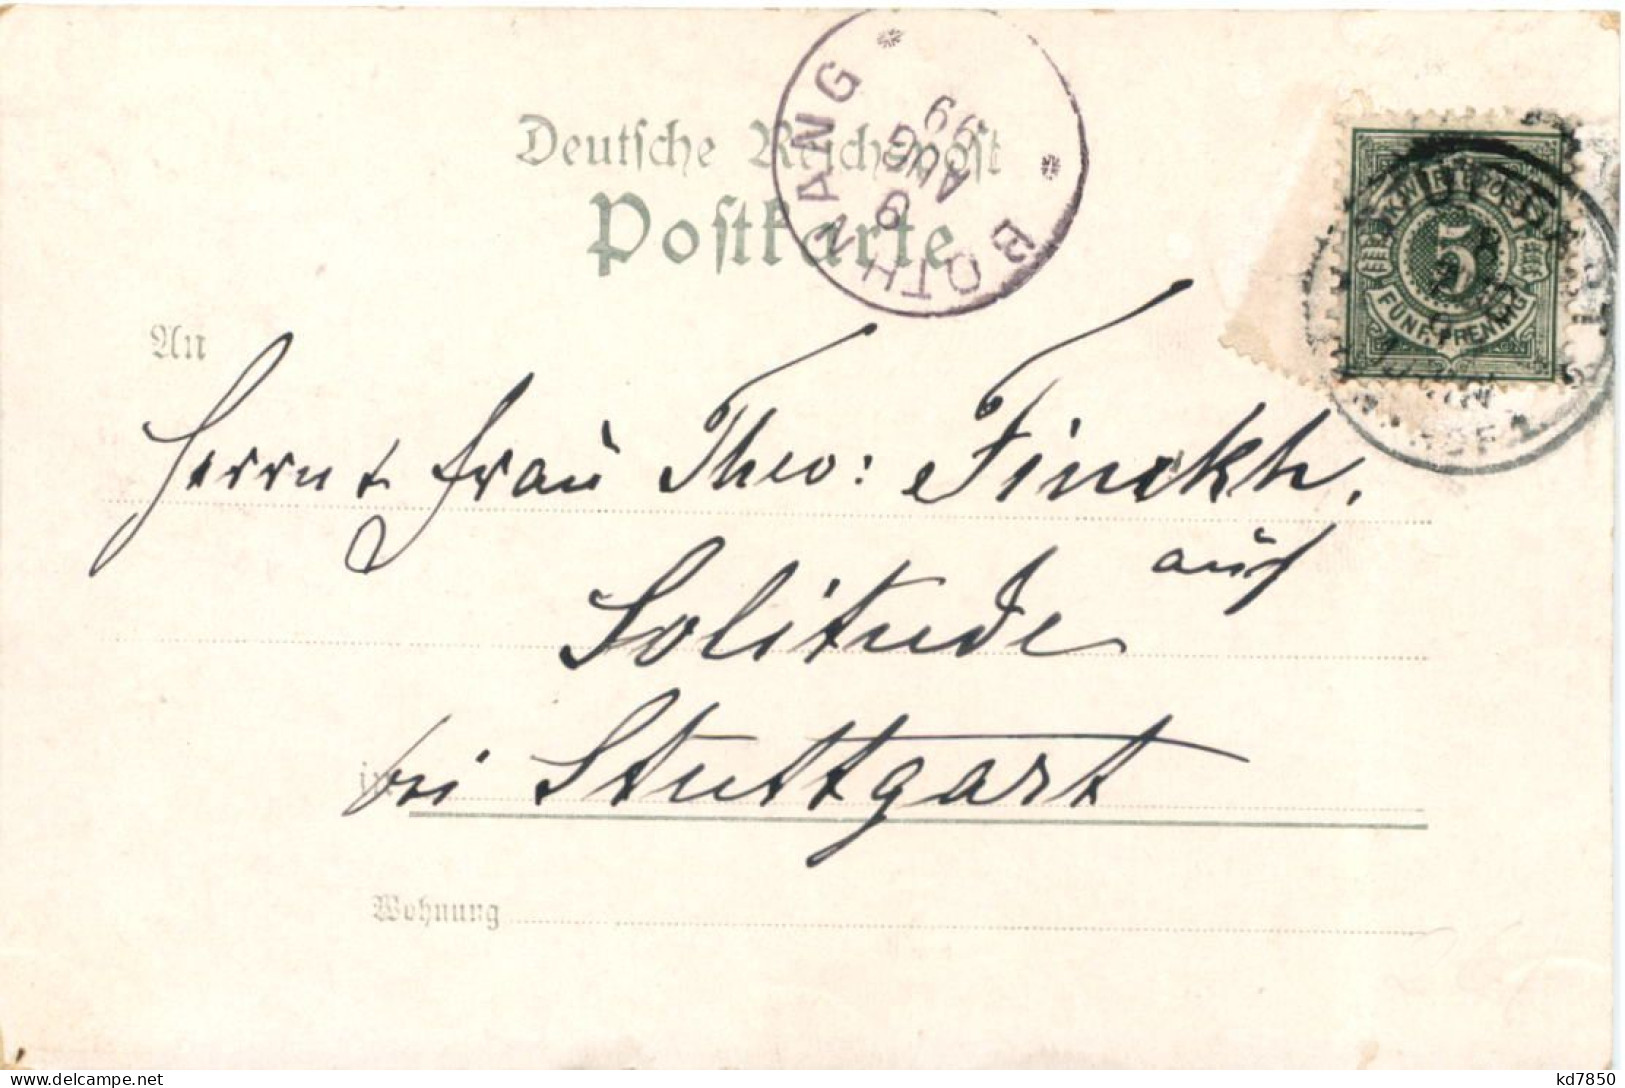 Deutsche Reichspost
Postkarte
BOTHNANG
9
AUG
99
K.WÜRTT.POST
5
FÜNF PFENNIG
STUTTGART
An
Herrn & Frau Theo: Finckh,
auf
Solitude
in
bei Stuttgart
Wohnung
kd7850